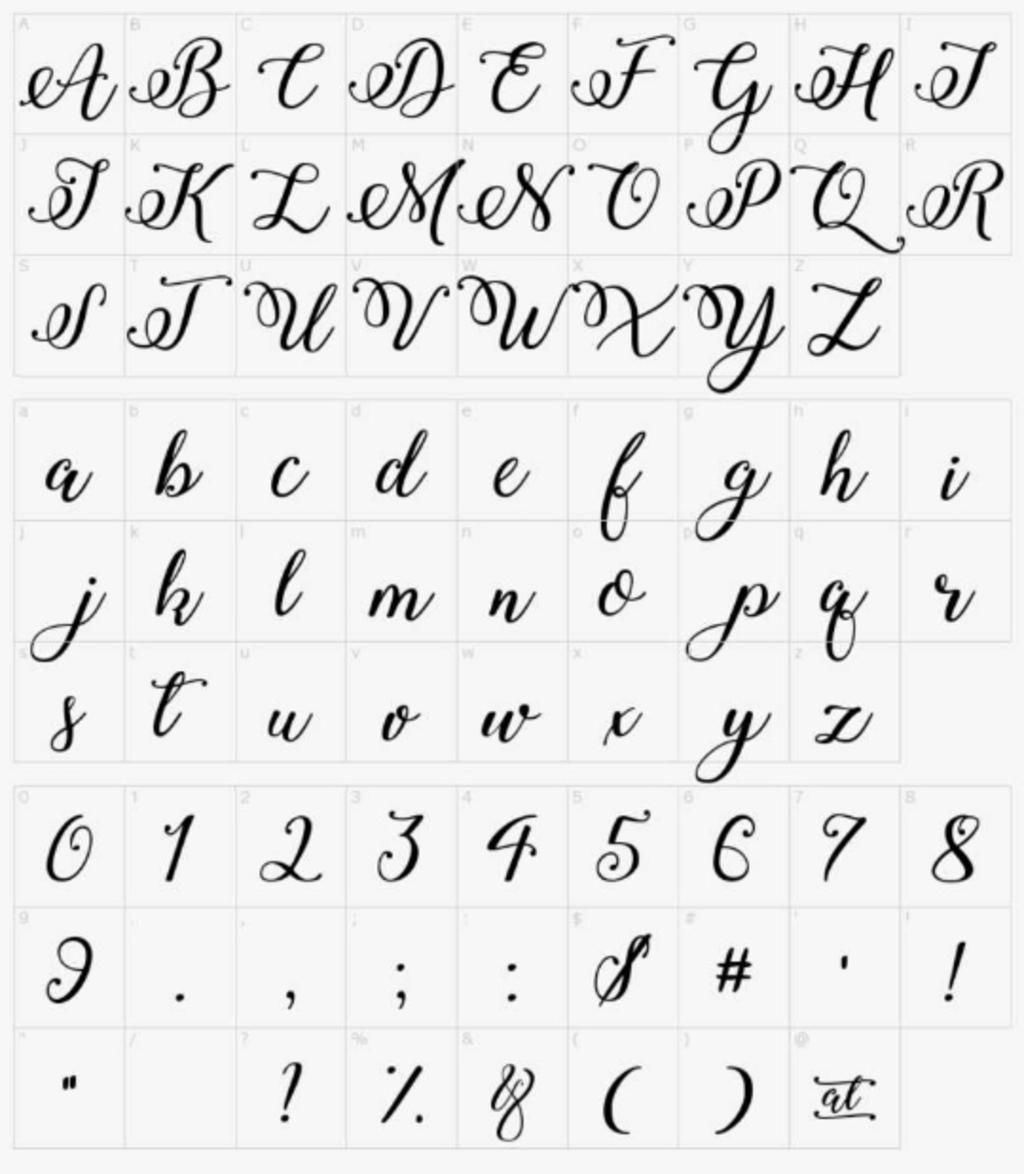 A B C D E F G H I
A B C D E F G H I
J K L M N O P Q R
J K L M N O P Q R
S T U V W X Y Z
S T U V W X Y Z
a b c d e f g h i
a b c d e f g h i
j k l m n o p q r
j k l m n o p q r
s t u v w x z
s t u v w x y z
0 1 2 3 4 5 6 7 8
0 1 2 3 4 5 6 7 8
9 . , ; : $ # ' !
9 . , ; : $ # ' !
" / ? % & ( ) @
" ? % & ( ) at